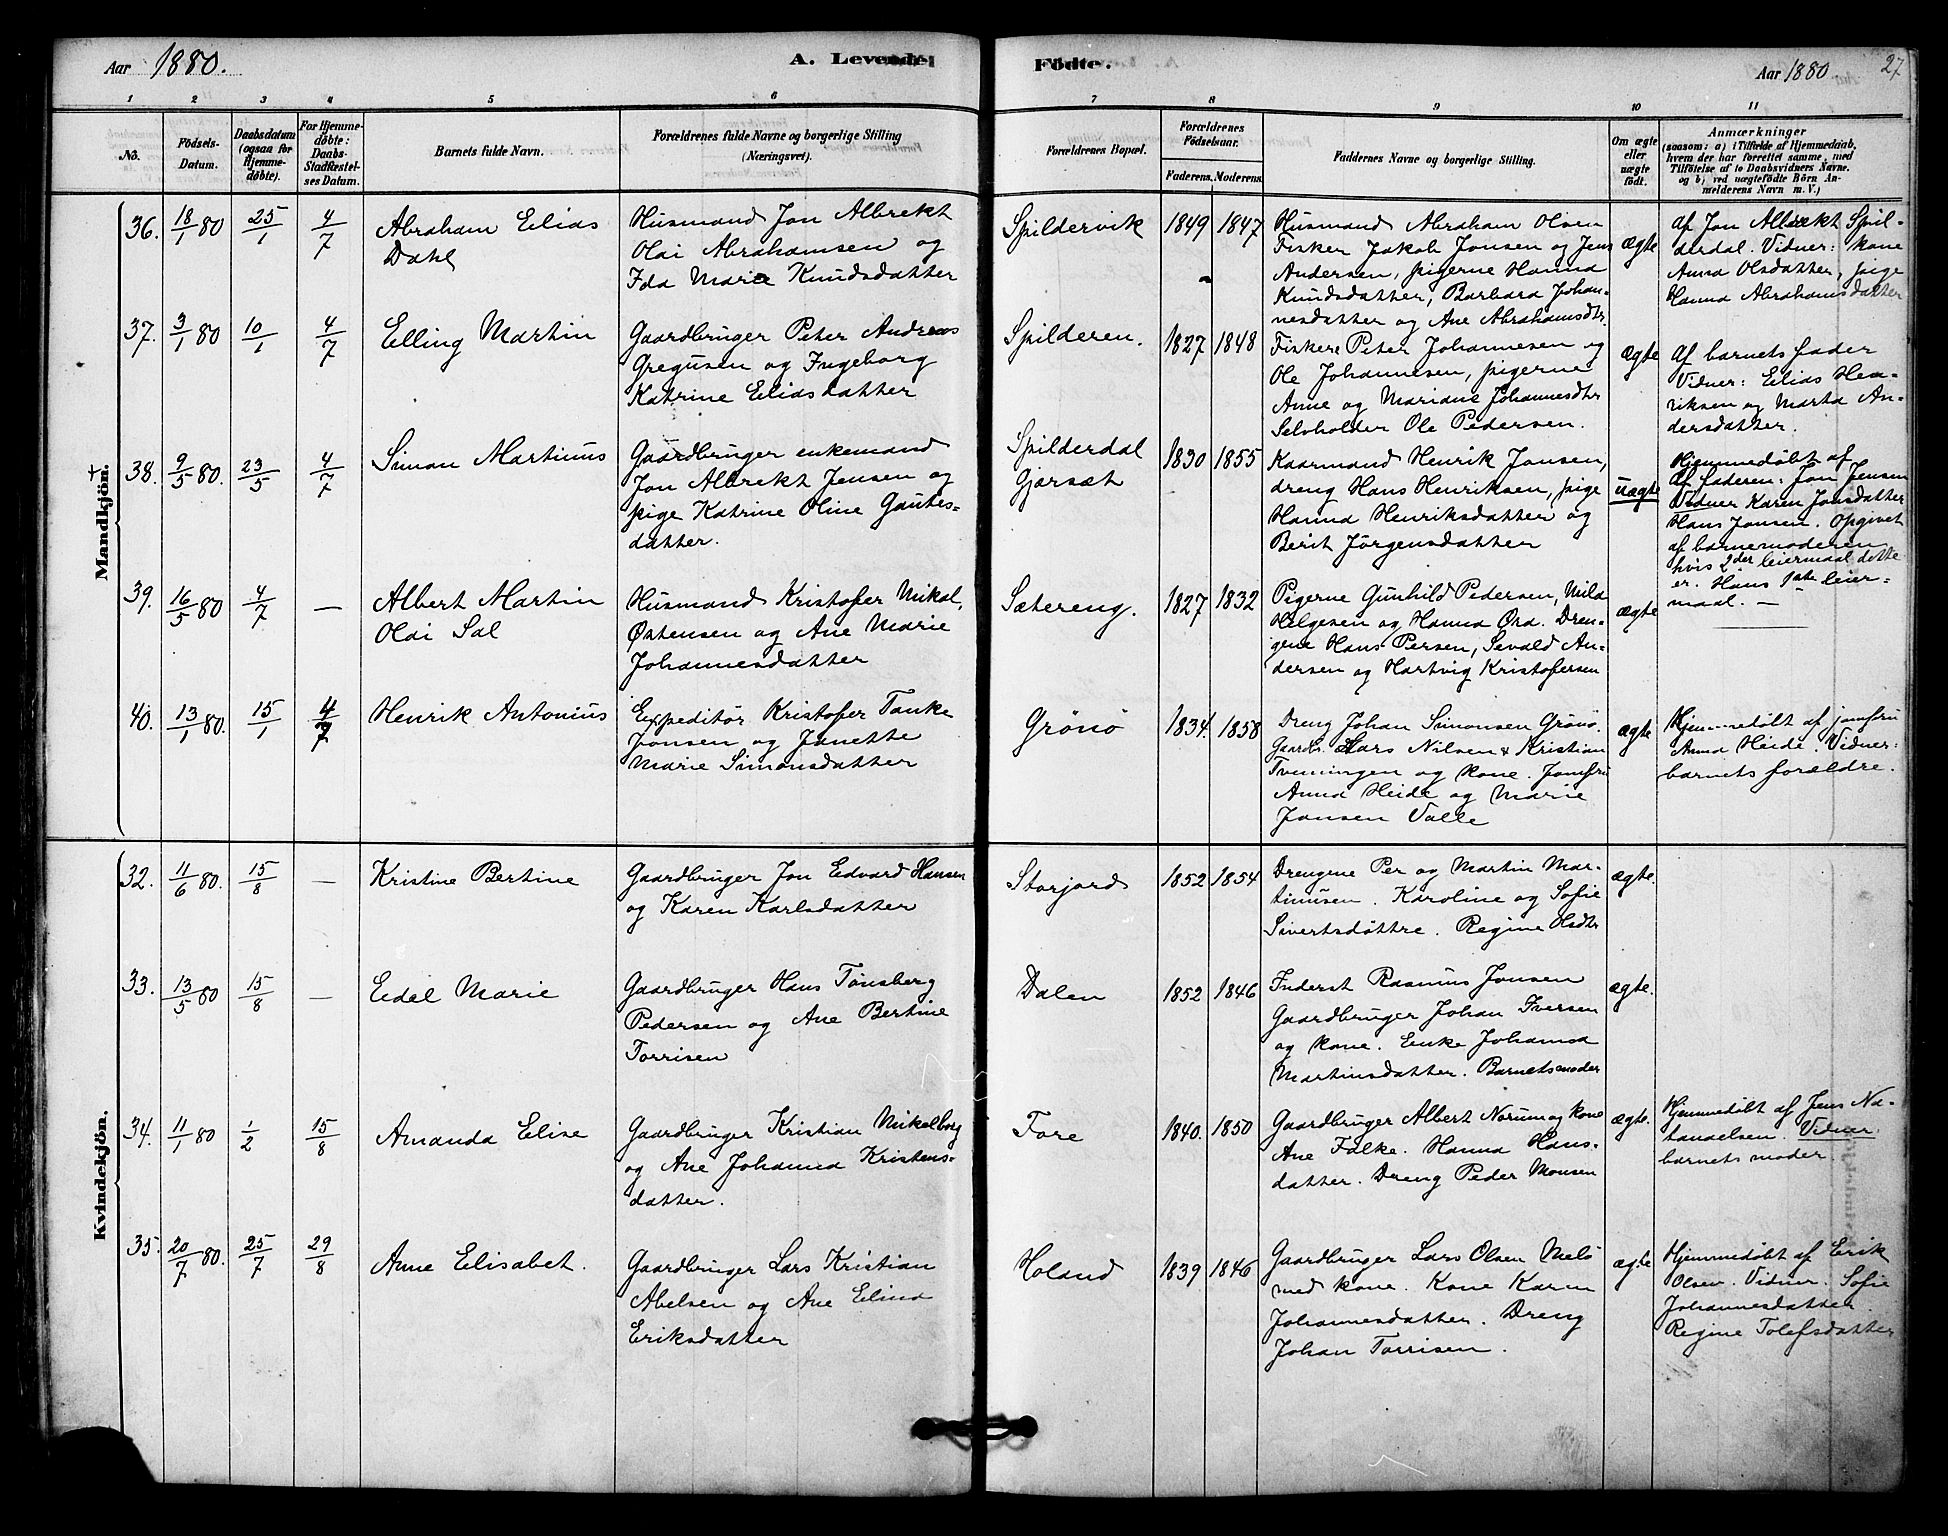 Aar 1880.
A. Levende
Födte.
Aar 1880
27
1 2 3 4 5 6 7 8 9 10 11
No.
Födsels-
Datum.
Daabsdatum
(ogsaa for
Hjemme-
döbte).
For Hjemme-
döbte:
Daabs-
Stadfæstel-
ses Datum.
Barnets fulde Navn.
Forældrenes fulde Navne og borgerlige Stilling
(Næringsvei).
Forældrenes Bopæl.
Forældrenes
Födselsaar.
Faderens. Moderens.
Faddernes Navne og borgerlige Stilling.
Om ægte
eller
uægte
födt.
Anmærkninger
(saasom: a) i Tilfælde af Hjemmedaab,
hvem der har forrettet samme, med
Tilföielse af to Daabsvidners Navne.
og b) ved uægtefödte Börn An-
melderens Navn m. V.)
Mandkjön.
36. 18/1 80 25/1 4/7
Abraham Elias
Dahl
Husmand Jon Albrekt
Olai Abrahamsen og
Ida Marie Knudsdatter
Spildervik
1849 1847
Husmand Abraham Olsen
Fisker Jakob Jonsen og Jens
Andersen, pigerne Hanna
Knudsdatter, Barbara Johan-
nesdatter og Ane Abrahamsdtr.
ægte
Af Jon Albrekt Spil-
derdal. Vidner: kone
Anna Olsdatter, pige
Hanna Abrahamsdatter
37. 3/1 80 10/1 4/7
Elling Martin
Gaardbruger Peter Andreas
Gregusen og Ingeborg
Katrine Eliasdatter
Spilderen.
1827 1848
Fisker Peter Johannesen og
Ole Johannesen, pigerne
Anne og Mariane Johannesdtr
Selvholder Ole Pedersen.
ægte
Af barnets fader
Vidner: Elias Hen-
riksen og Marta An-
dersdatter.
38. 9/5 80. 23/5 4/7
Simon Martinus
Gaardbruger enkemand
Jon Albrekt Jensen og
pige Katrine Oline Gautes-
datter.
Spilderdal
Gjersæt
1830 1855
Kaarmand Henrik Jonsen,
dreng Hans Henriksen, pige
Hanna Henriksdatter og
Berit Jørgensdatter
uægte
Hjemmedøbt af
Af faderen: Jon Jensen
Vidner Karen Jonsdatter
Hans Jonsen. Opgivet
af barnemoderen
hvis 2der leiermaal dette
er. Hans 1ste leier-
maal. —
39. 16/5 80 4/7 —
Albert Martin
Olai Sal
Husmand Kristofer Nikol.
Østensen og Ane Marie
Johannesdatter
Sætereng.
1827 1832
Pigerne Gunhild Pedersen, Mila
Helgesen og Hanna Ora. Dren-
gene Hans Persen, Sevald An-
dersen og Hartvig Kristofersen
ægte
40. 13/1 80. 15/1 4/7
Henrik Antonius
Expeditør Kristofer Tanke
Jonsen og Janette
Marie Simonsdatter
Grønø
1834. 1858
Dreng Johan Simonsen Grønø.
Gaardb. Lars Nilsen & Kristian
Tveningen og kone. Jomfru
Anna Heide og Marie
Jansen Valle
ægte
Hjemmedøbt af jomfru
Anna Heide. Vidner:
barnets forældre.
Kvindekjön.
32. 11/6 80. 15/8 —
Kristine Bertine
Gaardbruger Jon Edvard Hansen
og Karen Karlsdatter
Storjord
1852 1854
Drengene Per og Martin Mar-
tinusen. Karoline og Sofie
Sivertsdøttre. Regine Olsdtr
ægte.
33. 13/5 80 15/8 —
Edel Marie
Gaardbruger Hans Tønsberg
Pedersen og Ane Bertine
Torrisen
Dalen
1852 1846
Inderst Rasmus Jonsen
Gaardbruger Johan Iversen
og kone. Enke Johanna
Martinsdatter. Barnets moder
ægte.
34. 11/1 80 1/2 15/8
Amanda Elise
Gaardbruger Kristian Mikalborg
og Ane Johanna Kristens-
datter.
Fore
1840. 1850
Gaardbruger Albert Norum og kone
Ane Falke. Hanna Hans-
datter. Dreng Peder Monsen
ægte.
Hjemmedøbt af Jens Na-
tanaelsen. Vidner.
barnets moder.
35. 20/7 80. 25/7 29/8
Anne Elisabet.
Gaardbruger Lars Kristian
Abelsen og Ane Elina
Eriksdatter
Holand
1839 1846
Gaardbruger Lars Olsen Melø
med kone. Kone Karen
Johannesdatter. Dreng
Johan Torrisen.
ægte
Hjemmedøbt af Erik
Olsen. Vidner. Sofie
Johannesdatter.
Regine Tolefsdatter